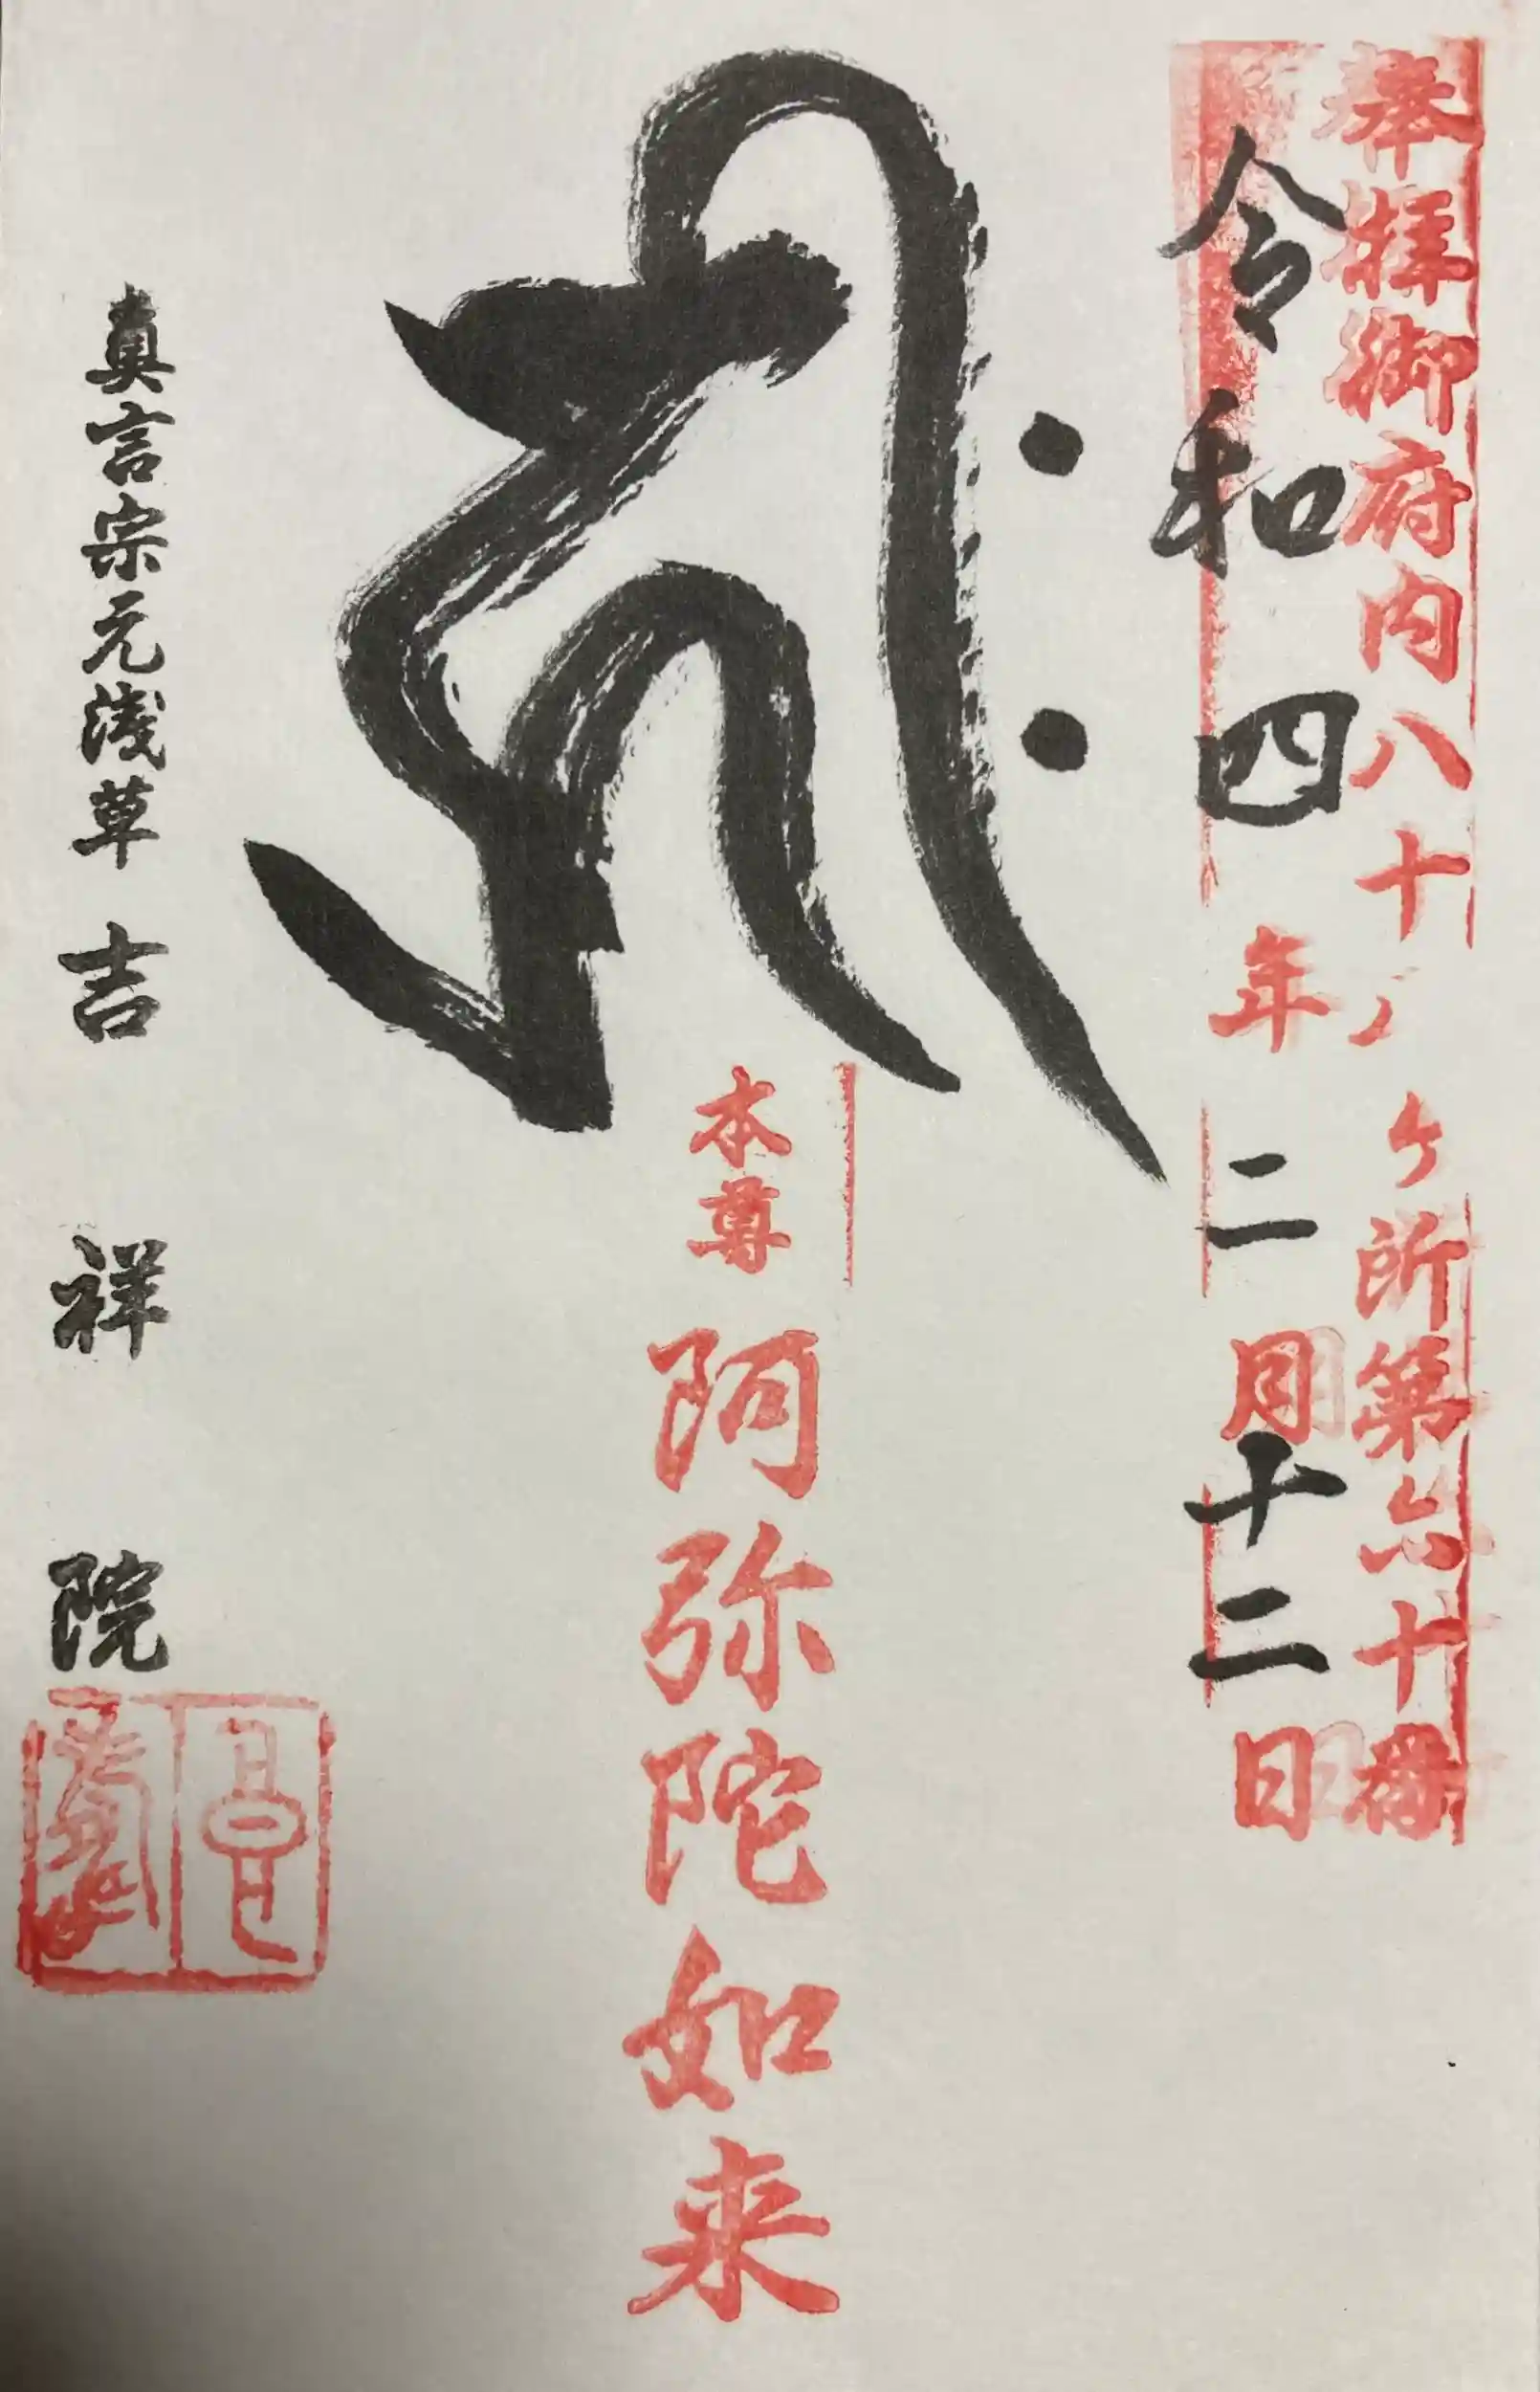 奉拝御府内八十八ヶ所第六十番
令和四年二月十二日
𑖮𑖿𑖨𑖱𑖾
本尊 阿弥陀如来
真言宗元浅草 吉祥院